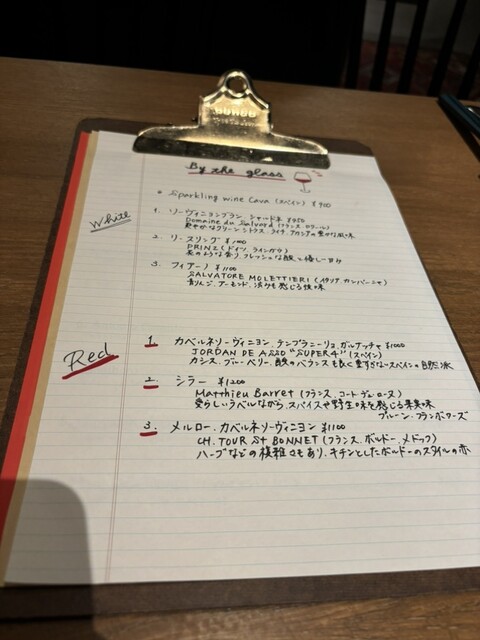 By the glass
Sparkling wine Cava (スペイン) ¥900
White
1. ソーヴィニヨンブラン、シャルドネ ¥950
Domaine du Salvard (フランス、ロワール)
爽やかなグリーン シトラス、ライチ、アカシアの豊かな風味
2. リースリング ¥1000
PRINZ (ドイツ、ラインガウ)
花のような香り、フレッシュな酸と優しい甘み
3. フィアーノ ¥1100
SALVATORE MOLETTIERI (イタリア、カンパーニャ)
青りんご、アーモンド、渋みも感じる後味
Red
1. カベルネソーヴィニヨン、テンプラニーリョ、ガルナッチャ ¥1000
JORDAN DE ASSO "SUPER4" (スペイン)
カシス、ブルーベリー 酸のバランスも良く重すぎないスペインの自然派
2. シラー ¥1200
Matthieu Barret (フランス、コート デュ ローヌ)
愛らしいラベルながら、スパイスや野生味を感じる果実味
プルーン、フランボワーズ
3. メルロー、カベルネソーヴィニヨン ¥1100
CH. TOUR St BONNET (フランス、ボルドー、メドック)
ハーブなどの複雑さもあり、キチンとしたボルドーのスタイルの赤